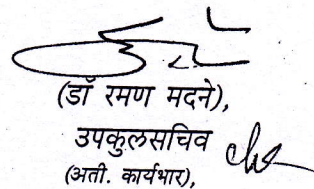 (डॉ रमण मदने),
उपकुलसचिव
(अती. कार्यभार),